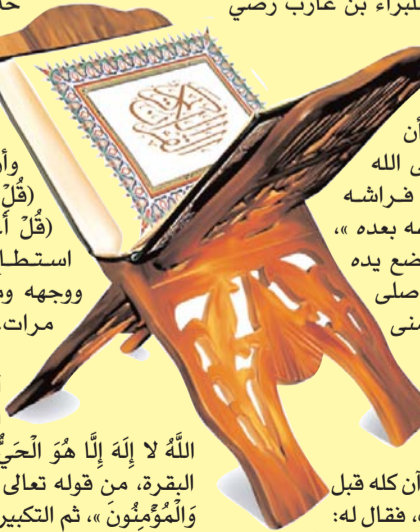 للبراء بن عازب رضي
أن
الله
فراشه
بعده »،
ضع يده
صلى
منى
وأن
(قُلْ
(قُلْ
استطا
ووجهه
مرات.
اللَّهُ لا إِلَهَ إِلَّا هُوَ الْحَيُّ
البقرة، من قوله تعالى
وَالْمُؤْمِنُونَ »، ثم التكبير
آن كله قبل
فقال له: